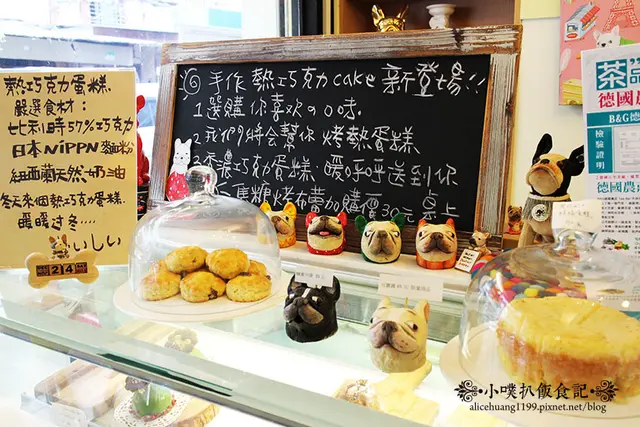 熱巧克力蛋糕
嚴選食材：
比利時57%巧克力
日本NiPPN麵粉
紐西蘭天然奶油
冬天來個熱巧克力蛋糕.
暖暖过冬....
いしい
214
手作熱巧克力cake新登場!!
1.選購你喜歡の口味.
2.我們將會幫你烤熱蛋糕
3.香濃巧克力蛋糕.暖呼呼送到你桌上
焦糖烤布蕾加購價30元
茶
德國農
B&G德
檢驗證明
德國農
小噗扒飯食記
alicehuang1199.pixnet.net/blog